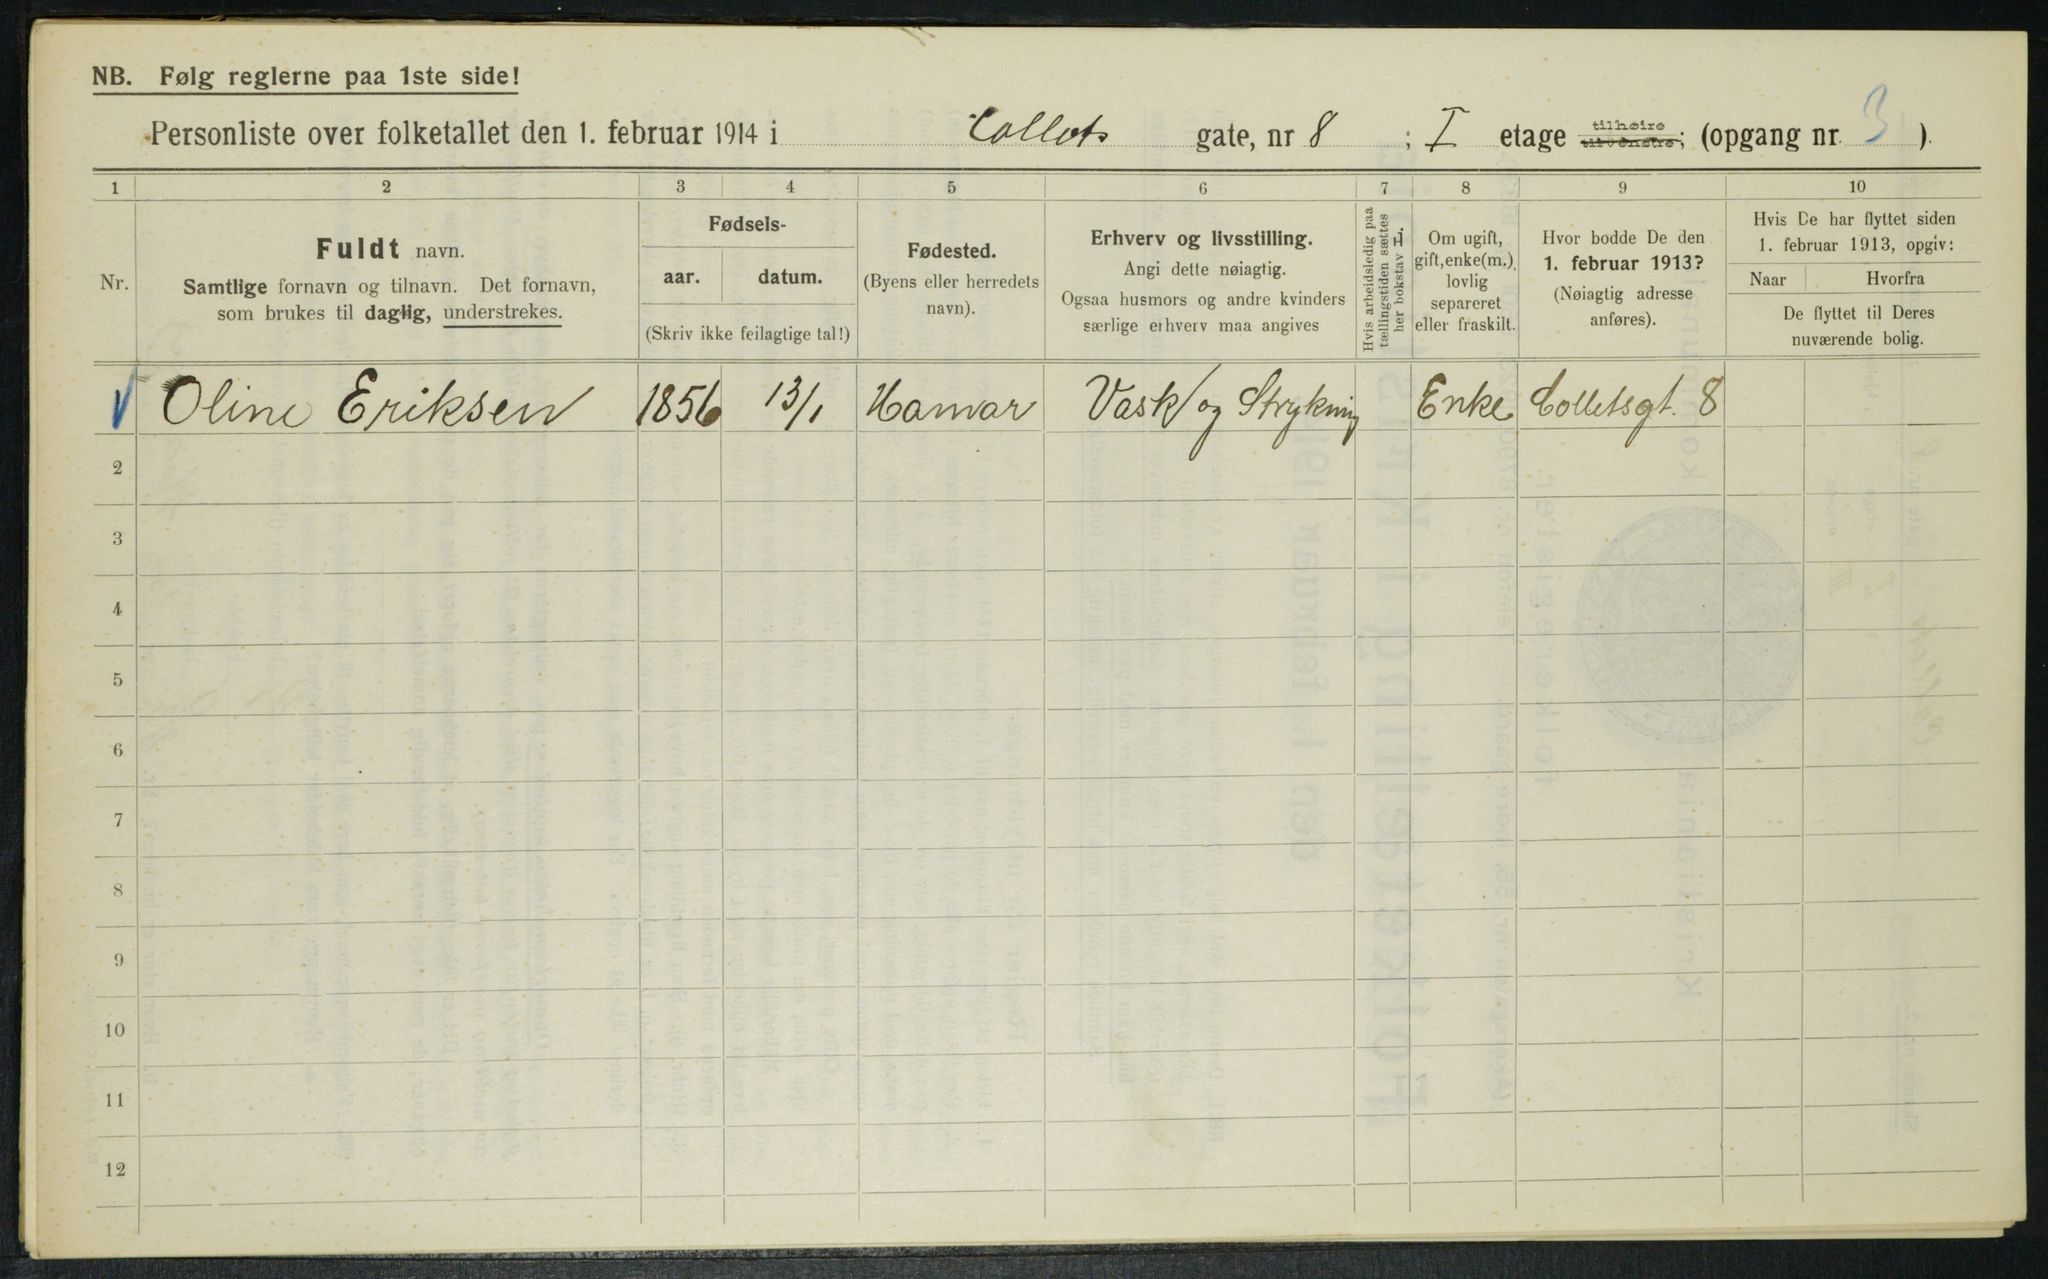 NB. Følg reglerne paa 1ste side!
Personliste over folketallet den 1. februar 1914 i Collets gate, nr 8 ; I etage tilhøire tilvenstre; (opgang nr. 3 ).
1 2 3 4 5 6 7 8 9 10
Nr.
Fuldt navn.
Samtlige fornavn og tilnavn. Det fornavn,
som brukes til daglig, understrekes.
Fødsels-
aar. datum.
(Skriv ikke feilagtige tal!)
Fødested.
(Byens eller herredets
navn).
Erhverv og livsstilling.
Angi dette nøiagtig.
Ogsaa husmors og andre kvinders
særlige erhverv maa angives
Hvis arbeidsledig paa
tællingstiden sættes
her bokstav L.
Om ugift,
gift, enke(m.),
lovlig
separeret
eller fraskilt.
Hvor bodde De den
1. februar 1913?
(Nøiagtig adresse
anføres).
Hvis De har flyttet siden
1. februar 1913, opgiv:
Naar Hvorfra
De flyttet til Deres
nuværende bolig.
Oline Eriksen 1856 13/1 Hamar Vask og Strykning Enke Colletsgt. 8
2
3
4
5
6
7
8
9
10
11
12